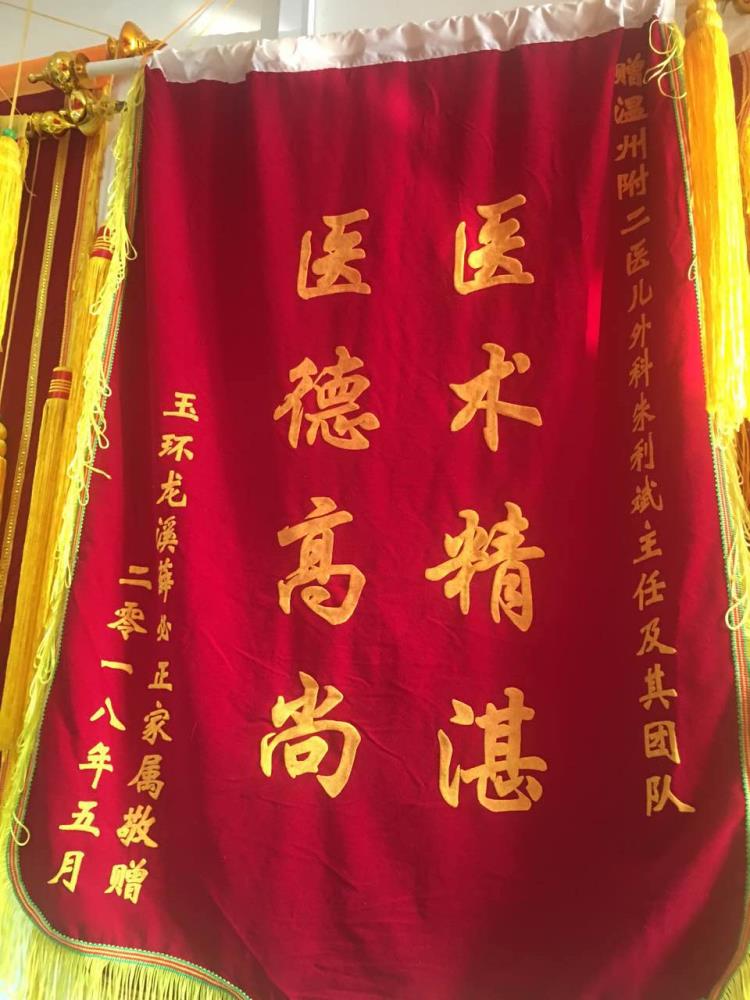 赠温州附二医儿外科朱利斌主任及其团队
医术精湛
医德高尚
玉环龙溪薛必正家属敬赠
二零一八年五月